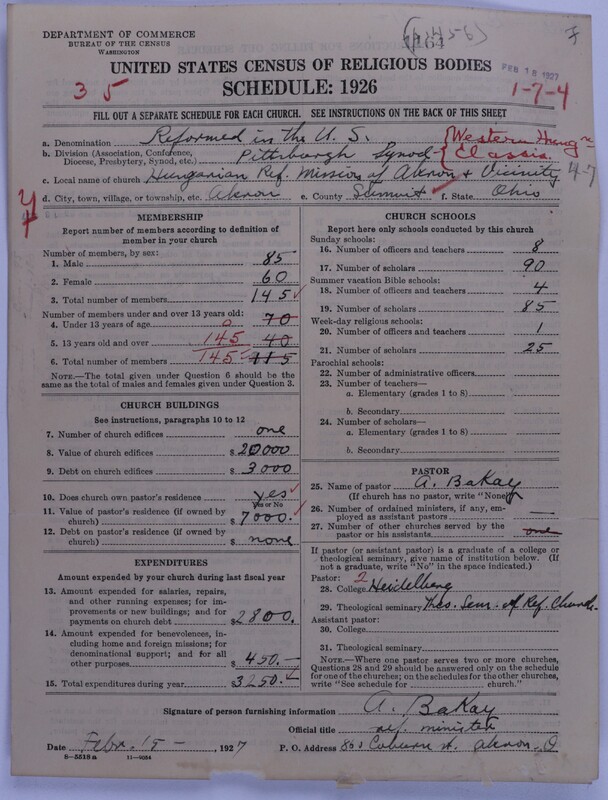 DEPARTMENT OF COMMERCE
BUREAU OF THE CENSUS
WASHINGTON
FEB 18 1927
UNITED STATES CENSUS OF RELIGIOUS BODIES
SCHEDULE: 1926
3 5
1-7-4
FILL OUT A SEPARATE SCHEDULE FOR EACH CHURCH. SEE INSTRUCTIONS ON THE BACK OF THIS SHEET
a. Denomination Reformed in the U. S.
b. Division (Association, Conference, Diocese, Presbytery, Synod, etc.) Pittsburgh Synod - Western Hung Classis
c. Local name of church Hungarian Ref. Mission of Akron & Vicinity 4-7
d. City, town, village, or township, etc. Akron e. County Summit f. State Ohio
MEMBERSHIP
Report number of members according to definition of
member in your church
Number of members, by sex:
1. Male 85
2. Female 60
3. Total number of members 145
Number of members under and over 13 years old:
4. Under 13 years of age 0 70
5. 13 years old and over 145 40
6. Total number of members 145 115
NOTE.—The total given under Question 6 should be
same as the total of males and females given under Question 3.
CHURCH BUILDINGS
See instructions, paragraphs 10 to 12
7. Number of church edifices one
8. Value of church edifices $ 20000
9. Debt on church edifices $ 3000
10. Does church own pastor's residence yes
Yes or No
11. Value of pastor's residence (if owned by
church) $ 7000.
12. Debt on pastor's residence (if owned by
church) $ none
EXPENDITURES
Amount expended by your church during last fiscal year
13. Amount expended for salaries, repairs,
and other running expenses; for im-
provements or new buildings; and for
payments on church debt $ 2800.
14. Amount expended for benevolences,
including home and foreign missions; for
denominational support; and for all
other purposes $ 450.—
15. Total expenditures during year $ 3250.—
CHURCH SCHOOLS
Report here only schools conducted by this church
Sunday schools:
16. Number of officers and teachers 8
17. Number of scholars 90
Summer vacation Bible schools:
18. Number of officers and teachers 4
19. Number of scholars 85
Week-day religious schools:
20. Number of officers and teachers 1
21. Number of scholars 25
Parochial schools:
22. Number of administrative officers
23. Number of teachers—
a. Elementary (grades 1 to 8)
b. Secondary
24. Number of scholars—
a. Elementary (grades 1 to 8)
b. Secondary
PASTOR
25. Name of pastor A. Bakay
(If church has no pastor, write "None")
26. Number of ordained ministers, if any, em-
ployed as assistant pastors —
27. Number of other churches served by the
pastor or his assistants one
If pastor (or assistant pastor) is a graduate of a college or
theological seminary, give name of institution below. (If
not a graduate, write "No" in the space indicated.)
Pastor: 2
28. College Heidelberg
29. Theological seminary Theo. Sem. of Ref. Church.
Assistant pastor:
30. College
31. Theological seminary
NOTE.—Where one pastor serves two or more churches,
Questions 28 and 29 should be answered only on the schedule
for one of the churches; on the schedules for the other churches,
write "See schedule for church."
Signature of person furnishing information A. Bakay
Official title ref. minister
Date Febr. 15 – , 1927 P. O. Address Coburn st. Akron. O
8-5318 a 11-9054